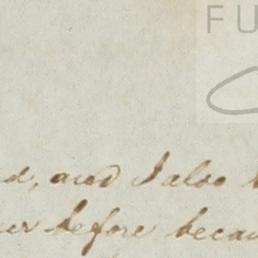 FU
d, and I also
er before becau